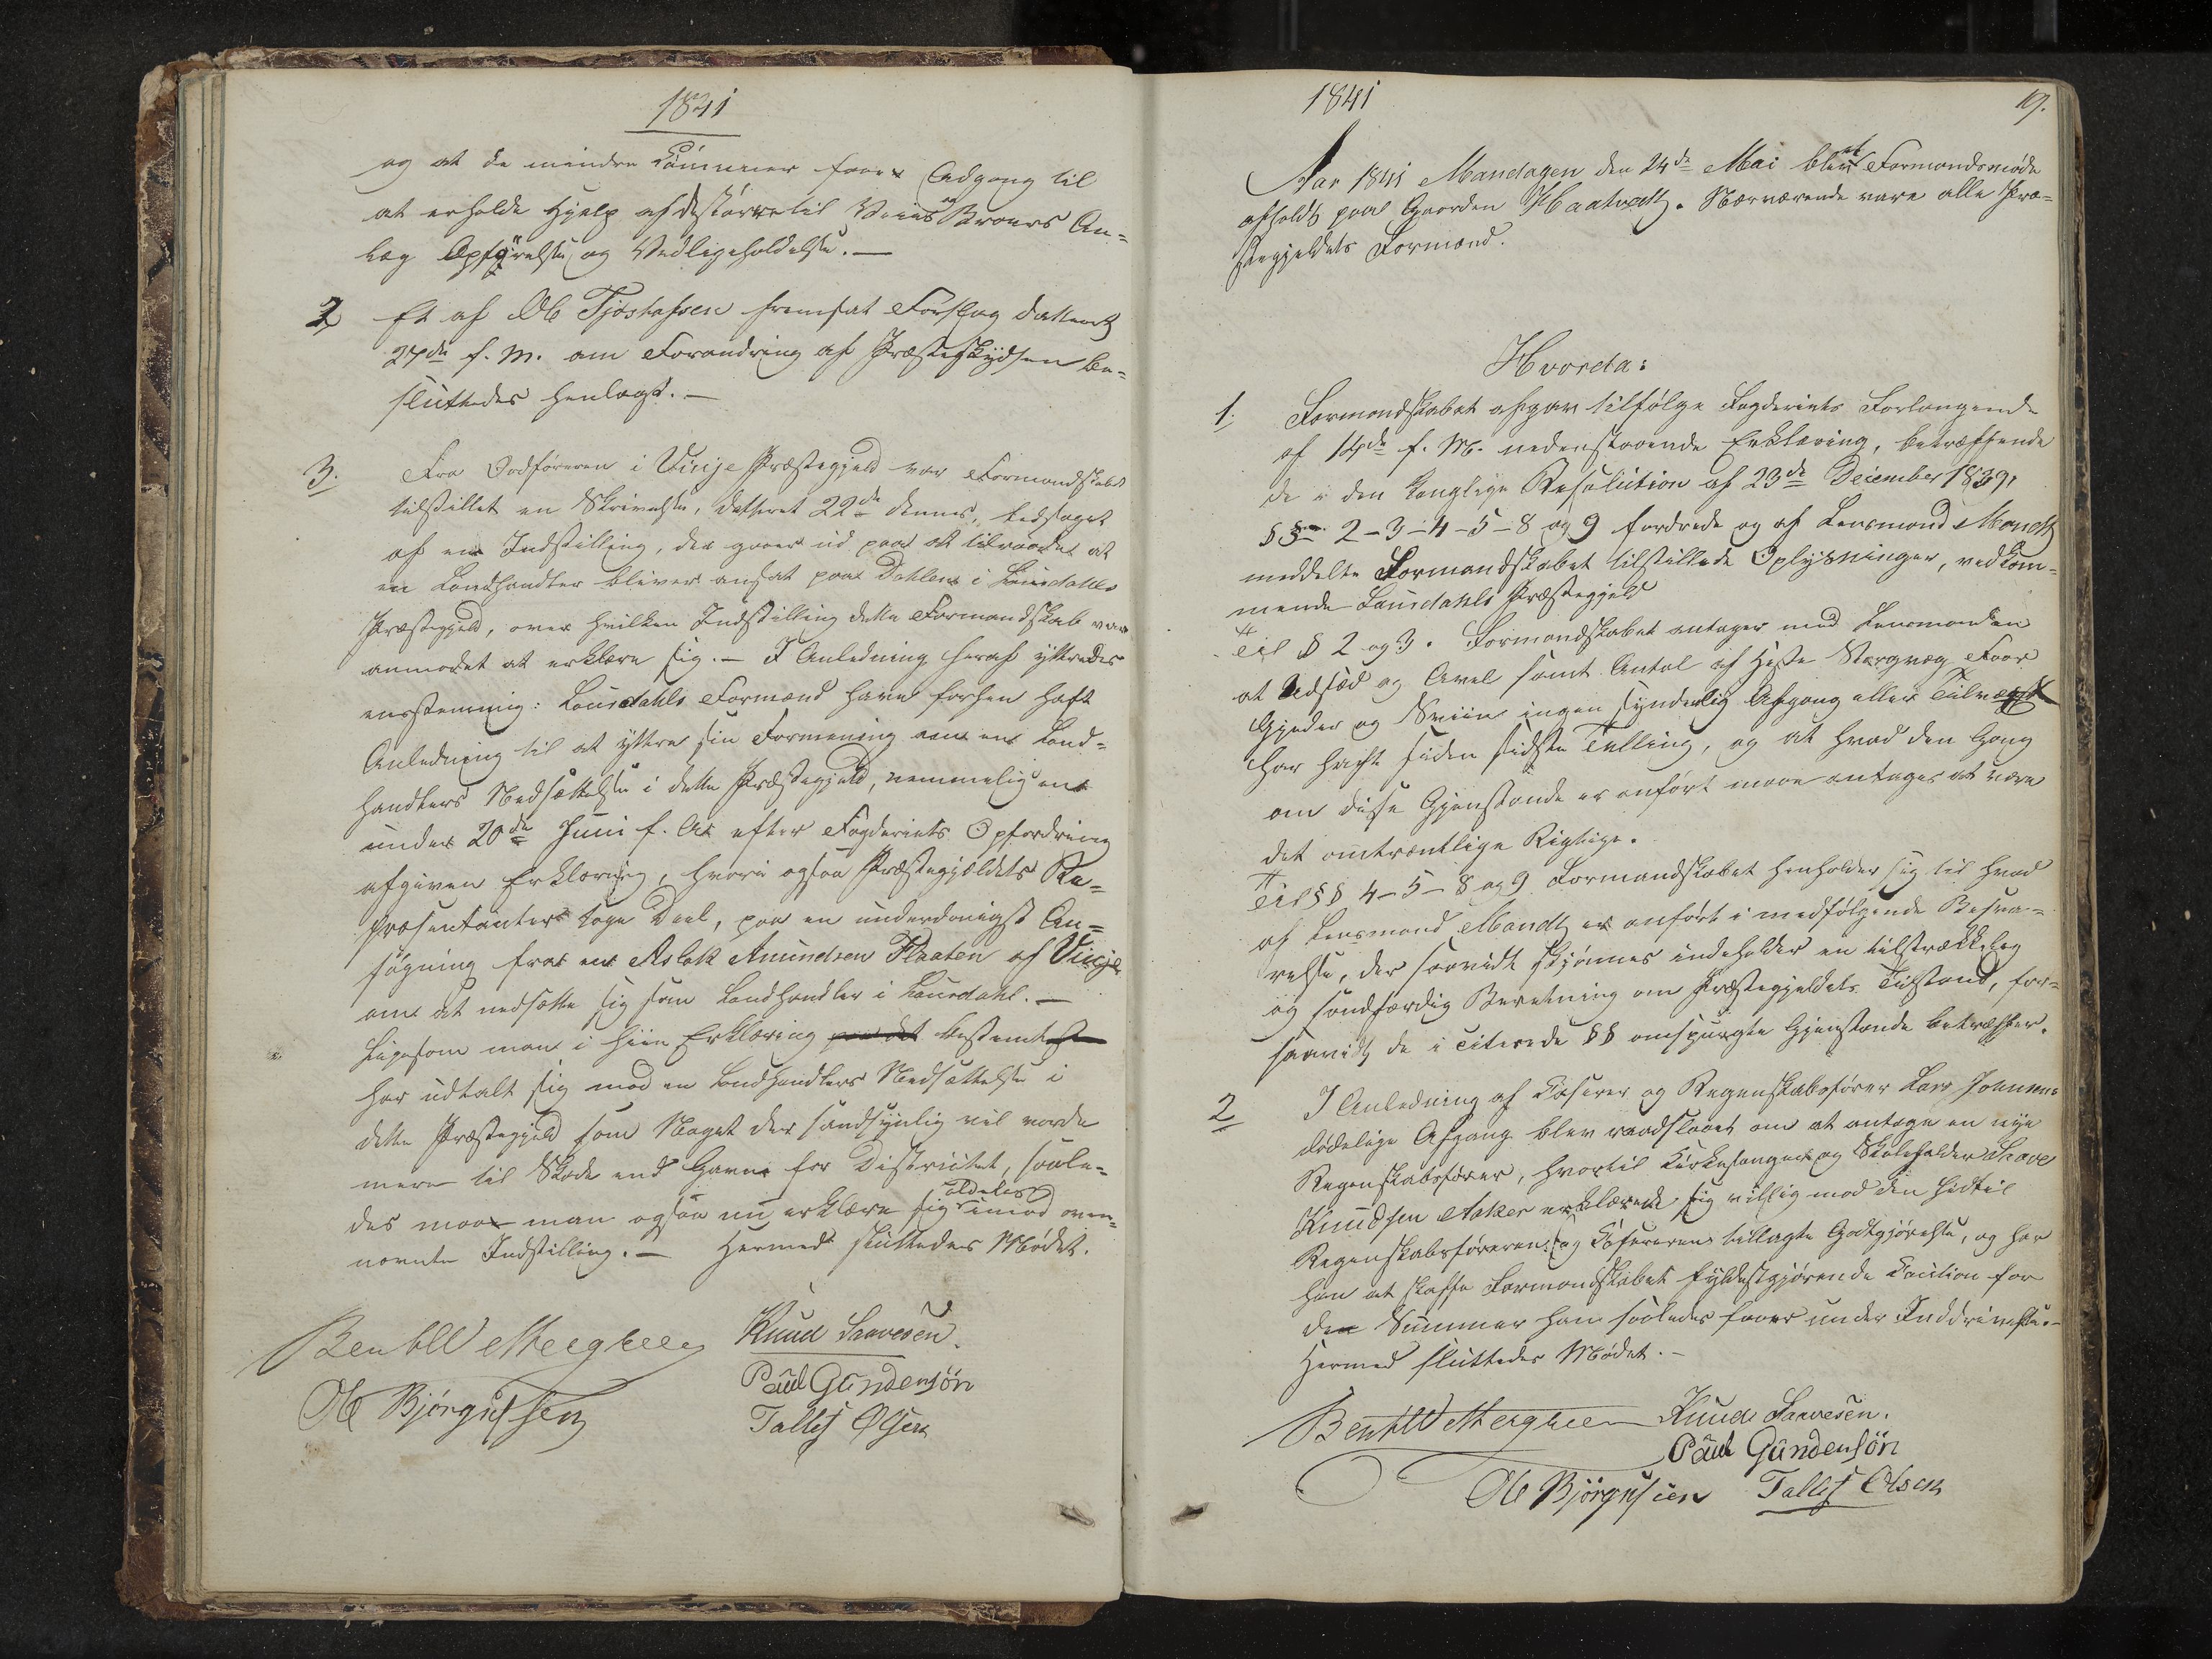 1841
og at de mindre Communer faaer Adgang til
at erholde Hjelp af de større til Veies og Broers An-
læg Opførelse og Vedligeholdelse. —
2 Et af Ole Tjøstofsen fremsat Forslag dateret
27de f. M. om Forandring af Præsteskydsen be-
sluttedes henlagt. —
3. Fra Ordføreren i Vinje Præstegjeld var Formandskabet
tilstillet en Skrivelse, datteret 22de dennes, ledsaget
af en Indstilling, der gaaer ud paa at tilraade at
en Landhandler bliver ansat paa Dahlen i Laurdahls
Præstegjeld, over hvilken Indstilling dette Formandskab var
anmodet at erklære sig. — I Anledning heraf yttredes
eenstemmig: Laurdahls Formænd have forhen haft
Anledning til at yttre sin Formening om en Land-
handlers Nedsættelse i dette Præstegjeld, nemmelig en
under 20de Juni f. A. efter Fogderiets Opfordring
afgiven Erklæring, hvori ogsaa Præstegjældets Re-
præsentanter toge Deel, paa en underdanigst An-
søgning fra en Aslak Amundsen Flaaten af Vinje
om at nedsætte sig som Landhandler i Laurdahl. —
Ligesom man i hiin Erklæring paa det bestemteste
har udtalt sig mod en Landhandlers Nedsættelse i
dette Præstegjeld som Noget der sandsynlig vil vorde
mere til Skade end Gavn for Districtet, saale-
des maa man ogsaa nu erklære sig aldeles imod oven-
nævnte Indstilling. — Hermed sluttedes Mødet.
Knud Saavesen.
Ole Bjørgufsen
Paul Gundersøn
Tallef Olsen
1841
19.
Aar 1841 Mandagen den 24de Mai blev et Formandsmøde
afholdt paa Gaarden Haatvedt. Nærværende vare alle Præ-
stegjeldets Formænd.
Hvorda:
1. Formandskabet afgav tilfølge Fogderiets Forlangende
af 14de f. M. nedenstaaende Erklæring, betræffende
de i den Konglige Resolution af 23de December 1839,
§§ 2-3-4-5-8 og 9 fordrede og af Lensmand Mandt
meddelte Formandskabet tilstillede Oplysninger, vedkom-
mende Laurdahls Præstegjeld
Til § 2 og 3. Formandskabet antager med Lensmanden
at Udsæd og Avel samt Antal af Heste Storqvæg Faar
Gjeder og Sviin ingen synderlig Afgang eller Tilvæxt
har havt siden sidste Telling, og at hvad den Gang
om disse Gjenstande er anført maae antages at være
det omtrentlige Rigtige.
Til §§ 4-5-8 og 9 Formandskabet henholder sig til hvad
af Lensmand Mandt er anført i medfølgende Besva-
relse, der saavidt skjønnes indeholder en tilstrækkelig
og sandfærdig Beretning om Præstegjeldets Tilstand, for-
saavidt de i citerede §§ omspurgte Gjenstande betræffer.
2 I Anledning af Casserer og Regenskabsfører Lars Johnsens
dødelige Afgang blev raadslaaet om at antage en nye
Regenskabsfører, hvortil Kirkesanger og Skoleholder Saave
Knudsen Aaker erklærede sig villig mod den hidtil
Regenskabsføreren og Casereren tillagte Godtgjørelse, og har
han at skaffe Formandskabet fyldestgjørende Caution for
de Summer han saaledes faaer under Inddrivelse. —
Hermed sluttedes Mødet. —
Knud Saavesen.
Paul Gundersøn
Ole Bjørgufsen
Tallef Olsen